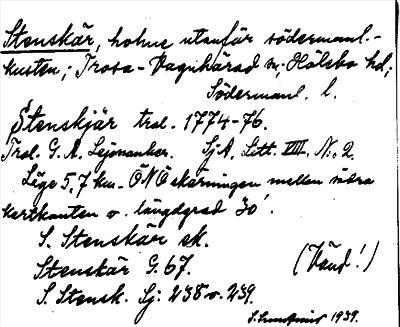 Stenskär, holme utanför södermanl.-
kusten; Trosa-Vagnhärad sn; Hölebo hd;
Södermanl. l.
Stenskjär trol. 1774-76.
Trol. G. A. Lejonanker. SjA, Litt. VIII, N. 2.
Läge 5,7 km. ÖNÖ skärningen mellan södra
kartkanten o. längdgrad 30'.
S. Stenskär ek.
Stenskär G. 67.
(Vänd!)
S. Stensk. Sj: 238 o. 239.
1939.